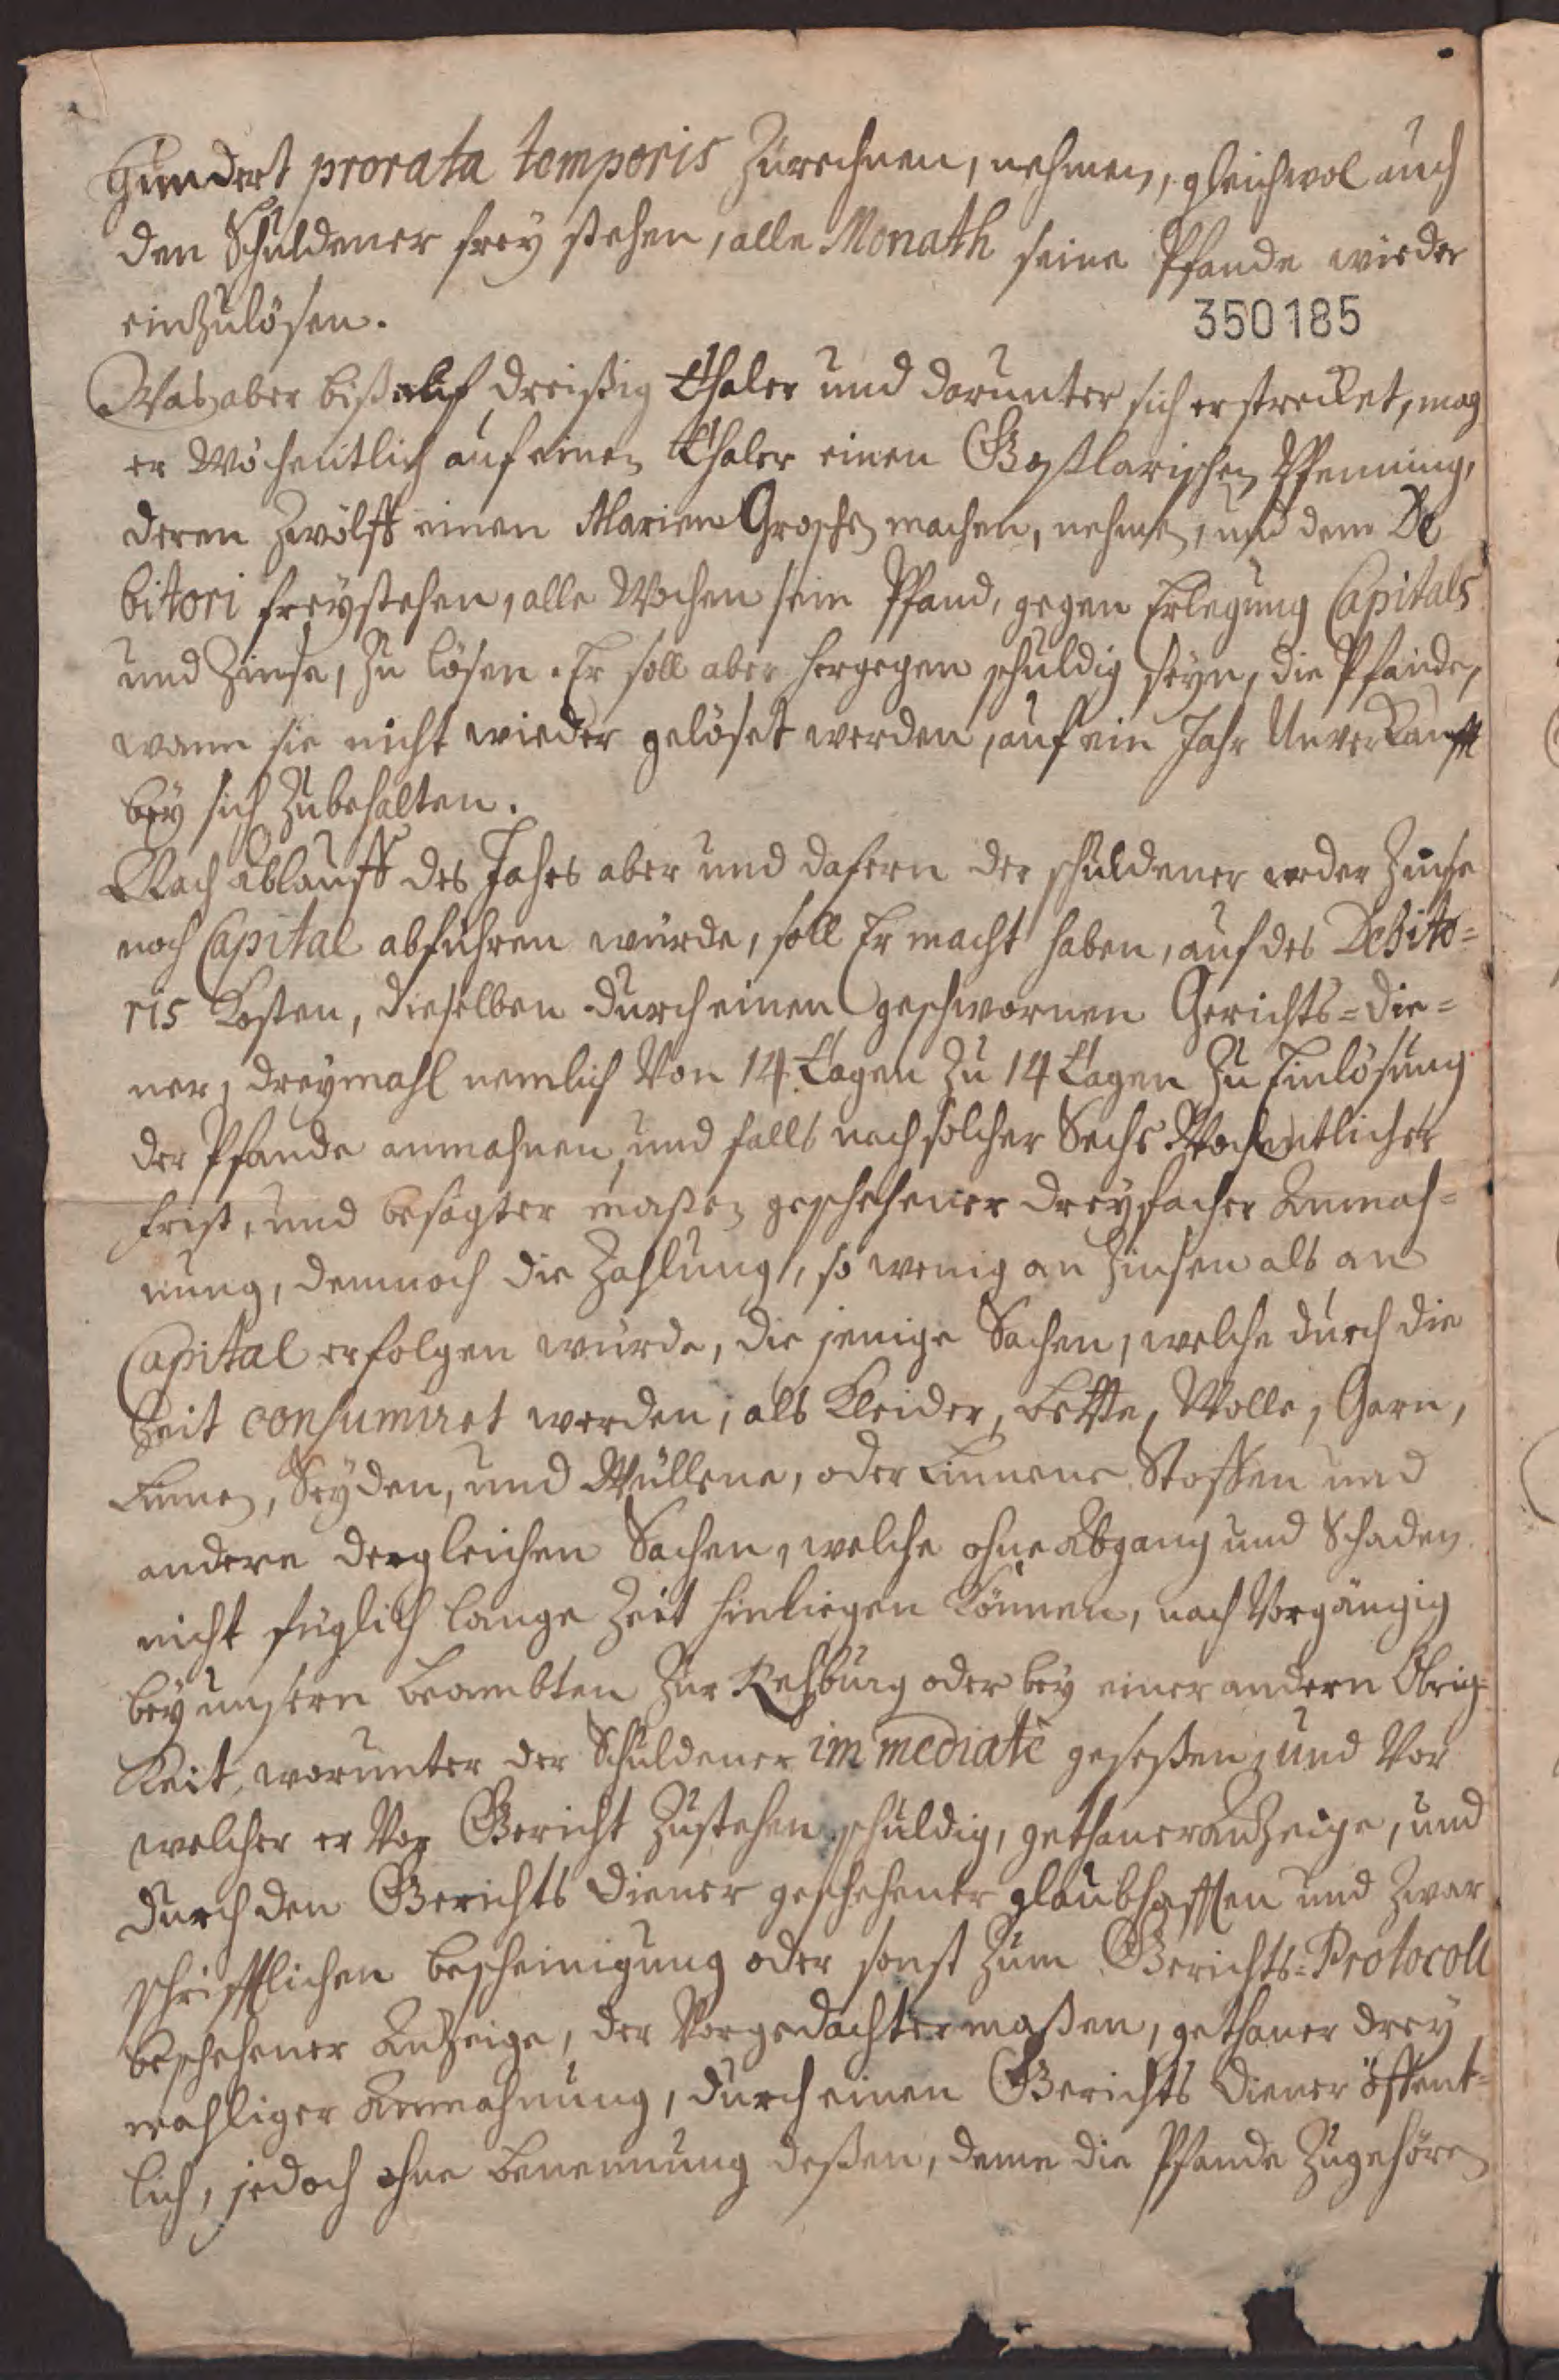 Hundert prorata temporis Zurechnen, nehmen, gleichwol auch
den Schuldener frey stehen, alle Monath seine Pfande wieder
einzulösen.
350185
Was aber biß auf dreißig Thaler und darunter sich erstrecket, mag
er Wöchentlich auf einen Thaler einen Goßlarischen Pfenning,
deren Zwölff einen Marien Groschen machen, nehmen, und dem De
bitori freystehen, alle Wochen sein Pfand, gegen Erlegung Capitals
und Zinse, zu lösen. Er soll aber hergegen schuldig seyn, die Pfande,
wann sie nicht wieder gelöset werden, auf ein Jahr Unverkaufft
bey sich Zubehalten.
Nach Ablauff des Jahrs aber und dafern der schuldener weder Zinse
noch Capital abführen würde, soll Er macht haben, auf des Debito=
ris Kosten, dieselben durch einen geschwornen Gerichts=die=
ner, dreymahl nemlich Von 14 Tagen Zu 14 Tagen Zu Einlösung
der Pfande anmahnen, und falls nach solcher Sechs Wochentlicher
frist, und besagter maßen geschehener dreyfacher Anmah=
nung, dennoch die Zahlung, so wenig an Zinsen als an
Capital erfolgen würde, die jenige Sachen, welche durch die
Zeit consumiret werden, als Kleider, Bette, Wolle, Garn,
Linnen, Seyden, und Wüllene, oder Linnene Stoffen und
andere dergleichen Sachen, welche ohne Abgang und Schaden
nicht füglich lange Zeit hinliegen können, nach Vorgängig
bey unsern Beambten Zur Rehburg oder bey einer andern Obrig=
keit, worunter der Schuldener immediatè geseßen, und Vor
welcher er Vor Gericht Zustehen schuldig, gethaner Anzeige, und
durch den Gerichts Diener geschehener glaubhafften und Zwar
schrifftlichen bescheinigung oder sonst Zum Gerichts=Protocoll
beschehener Anzeige, der Vorgedachter maßen, gethaner drey
mahliger Anmahnung, durch einen Gerichts Diener öffent=
lich, jedoch ohne Benennung deßen, deme die Pfande Zugehören